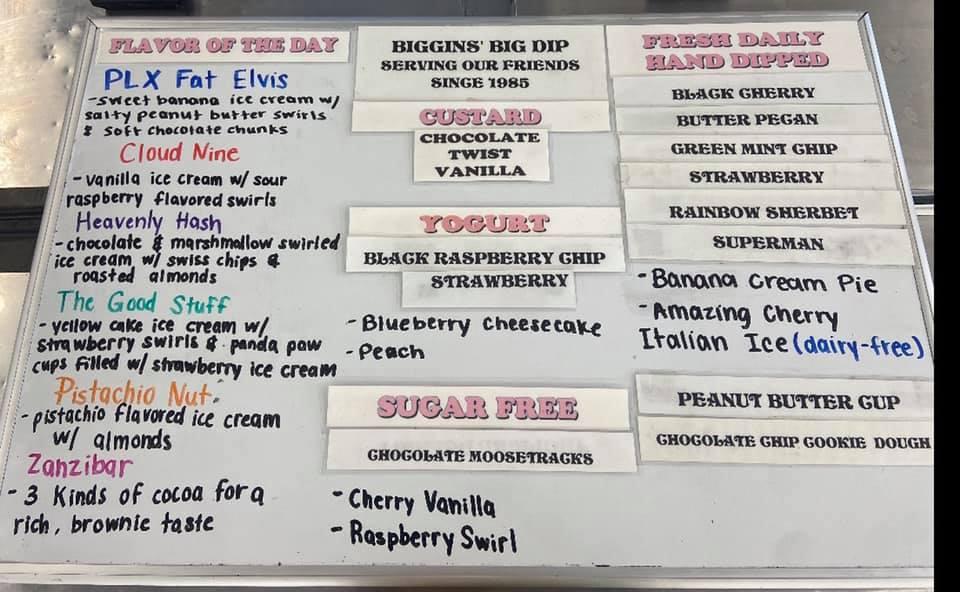 FLAVOR OF THE DAY
PLX Fat Elvis
-sweet banana ice cream w/
salty peanut butter swirls
& soft chocolate chunks
Cloud Nine
- vanilla ice cream w/ sour
raspberry flavored swirls
Heavenly Hash
- chocolate & marshmallow swirled
ice cream w/ swiss chips &
roasted almonds
The Good Stuff
- yellow cake ice cream w/
strawberry swirls & panda paw
cups filled w/ strawberry ice cream
Pistachio Nut
- pistachio flavored ice cream
w/ almonds
Zanzibar
- 3 Kinds of cocoa for a
rich, brownie taste
BIGGINS' BIG DIP
SERVING OUR FRIENDS
SINCE 1985
CUSTARD
CHOCOLATE
TWIST
VANILLA
YOGURT
BLACK RASPBERRY CHIP
STRAWBERRY
- Blueberry Cheesecake
- Peach
SUGAR FREE
CHOCOLATE MOOSETRACKS
- Cherry Vanilla
- Raspberry Swirl
FRESH DAILY
HAND DIPPED
BLACK CHERRY
BUTTER PECAN
GREEN MINT CHIP
STRAWBERRY
RAINBOW SHERBET
SUPERMAN
- Banana Cream Pie
- Amazing Cherry
Italian Ice (dairy-free)
PEANUT BUTTER CUP
CHOCOLATE CHIP COOKIE DOUGH